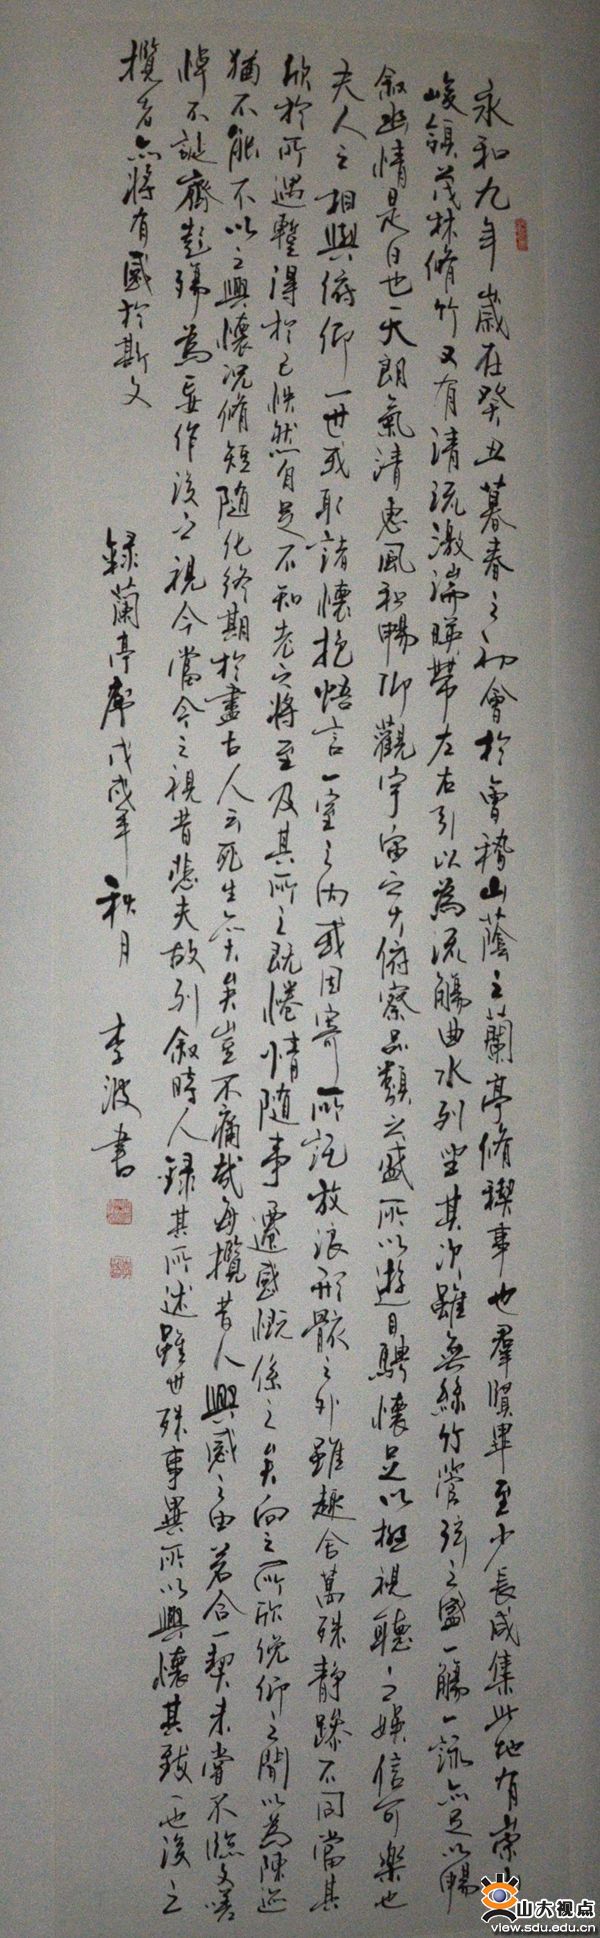 永和九年歲在癸丑暮春之初會於會稽山蔭之蘭亭脩稧事也羣賢畢至少長咸集此地有崇山
峻領茂林脩竹又有清流激湍暎帶左右引以為流觴曲水列坐其次雖無絲竹管弦之盛一觴一詠亦足以暢
叙幽情是日也天朗氣清惠風和暢仰觀宇宙之大俯察品類之盛所以遊目騁懷足以極視聽之娛信可樂也
夫人之相與俯仰一世或取諸懷抱悟言一室之內或因寄所託放浪形骸之外雖趣舍萬殊靜躁不同當其
欣於所遇蹔得於己怏然自足不知老之將至及其所之既惓情隨事遷感慨係之矣向之所欣俛仰之閒以為陳迹
猶不能不以之興懷況脩短隨化終期於盡古人云死生亦大矣豈不痛哉每攬昔人興感之由若合一契未嘗不臨文嗟
悼不誕齊彭殤為妄作後之視今當今之視昔悲夫故列叙時人錄其所述雖世殊事異所以興懷其致一也後之
攬者亦將有感於斯文
錄蘭亭序戊戌年秋月 李波書
山大视点
view.sdu.edu.cn